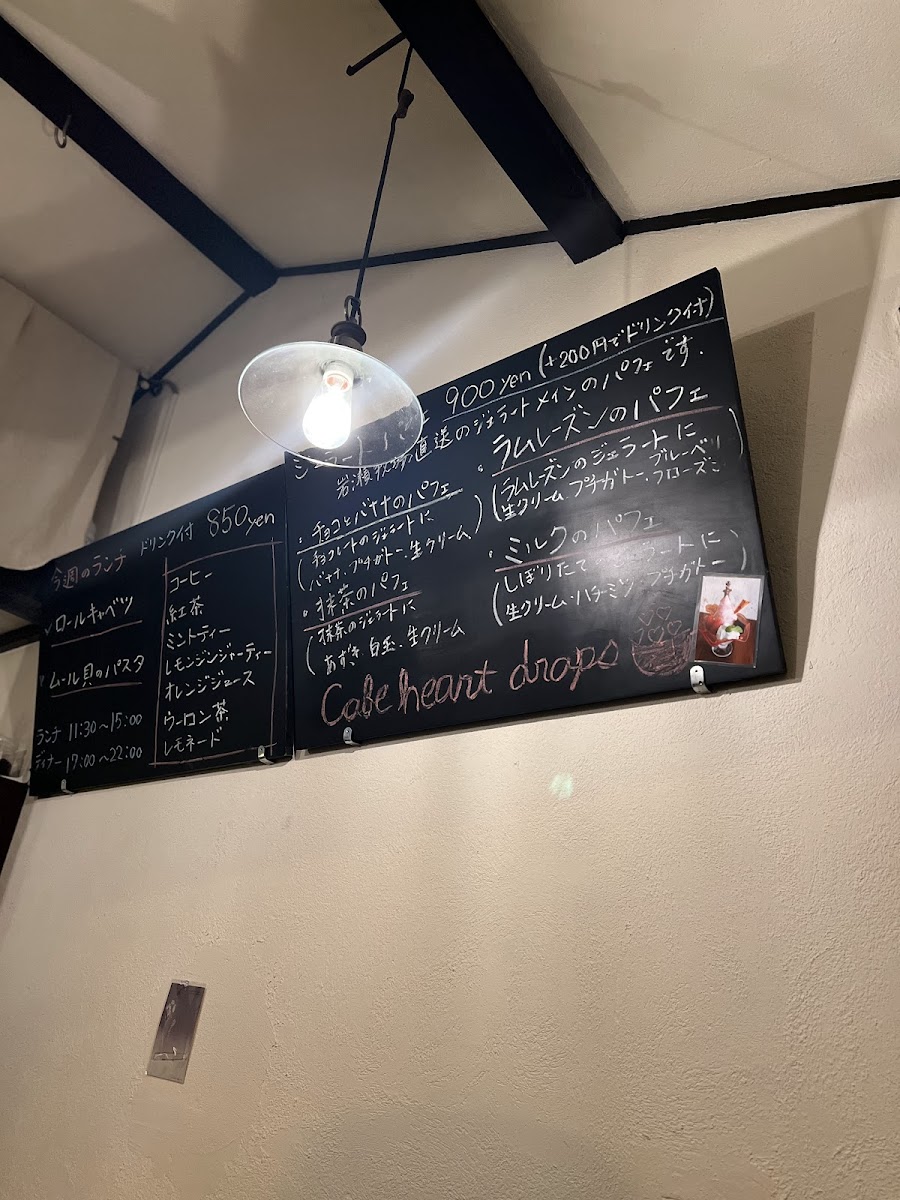 今週のランチ ドリンク付 850yen
ロールキャベツ
ムール貝のパスタ
ランチ 11:30〜15:00
ディナー 17:00〜22:00
コーヒー
紅茶
ミントティー
レモンジンジャーティー
オレンジジュース
ウーロン茶
レモネード
900yen (+200円でドリンク付)
直送のジェラートメインのパフェです.
・チョコとバナナのパフェ
(チョコレートのジェラートに
バナナ、プチガトー、生クリーム)
・抹茶のパフェ
(抹茶のジェラートに
あずき、白玉、生クリーム
・ラムレーズンのパフェ
(ラムレーズンのジェラートに
生クリーム プチガトー、ブルーベリー
・ミルクのパフェ
(しぼりたて ジェラートに
生クリーム・ハチミツ・プチガトー)
Cafe heart drops